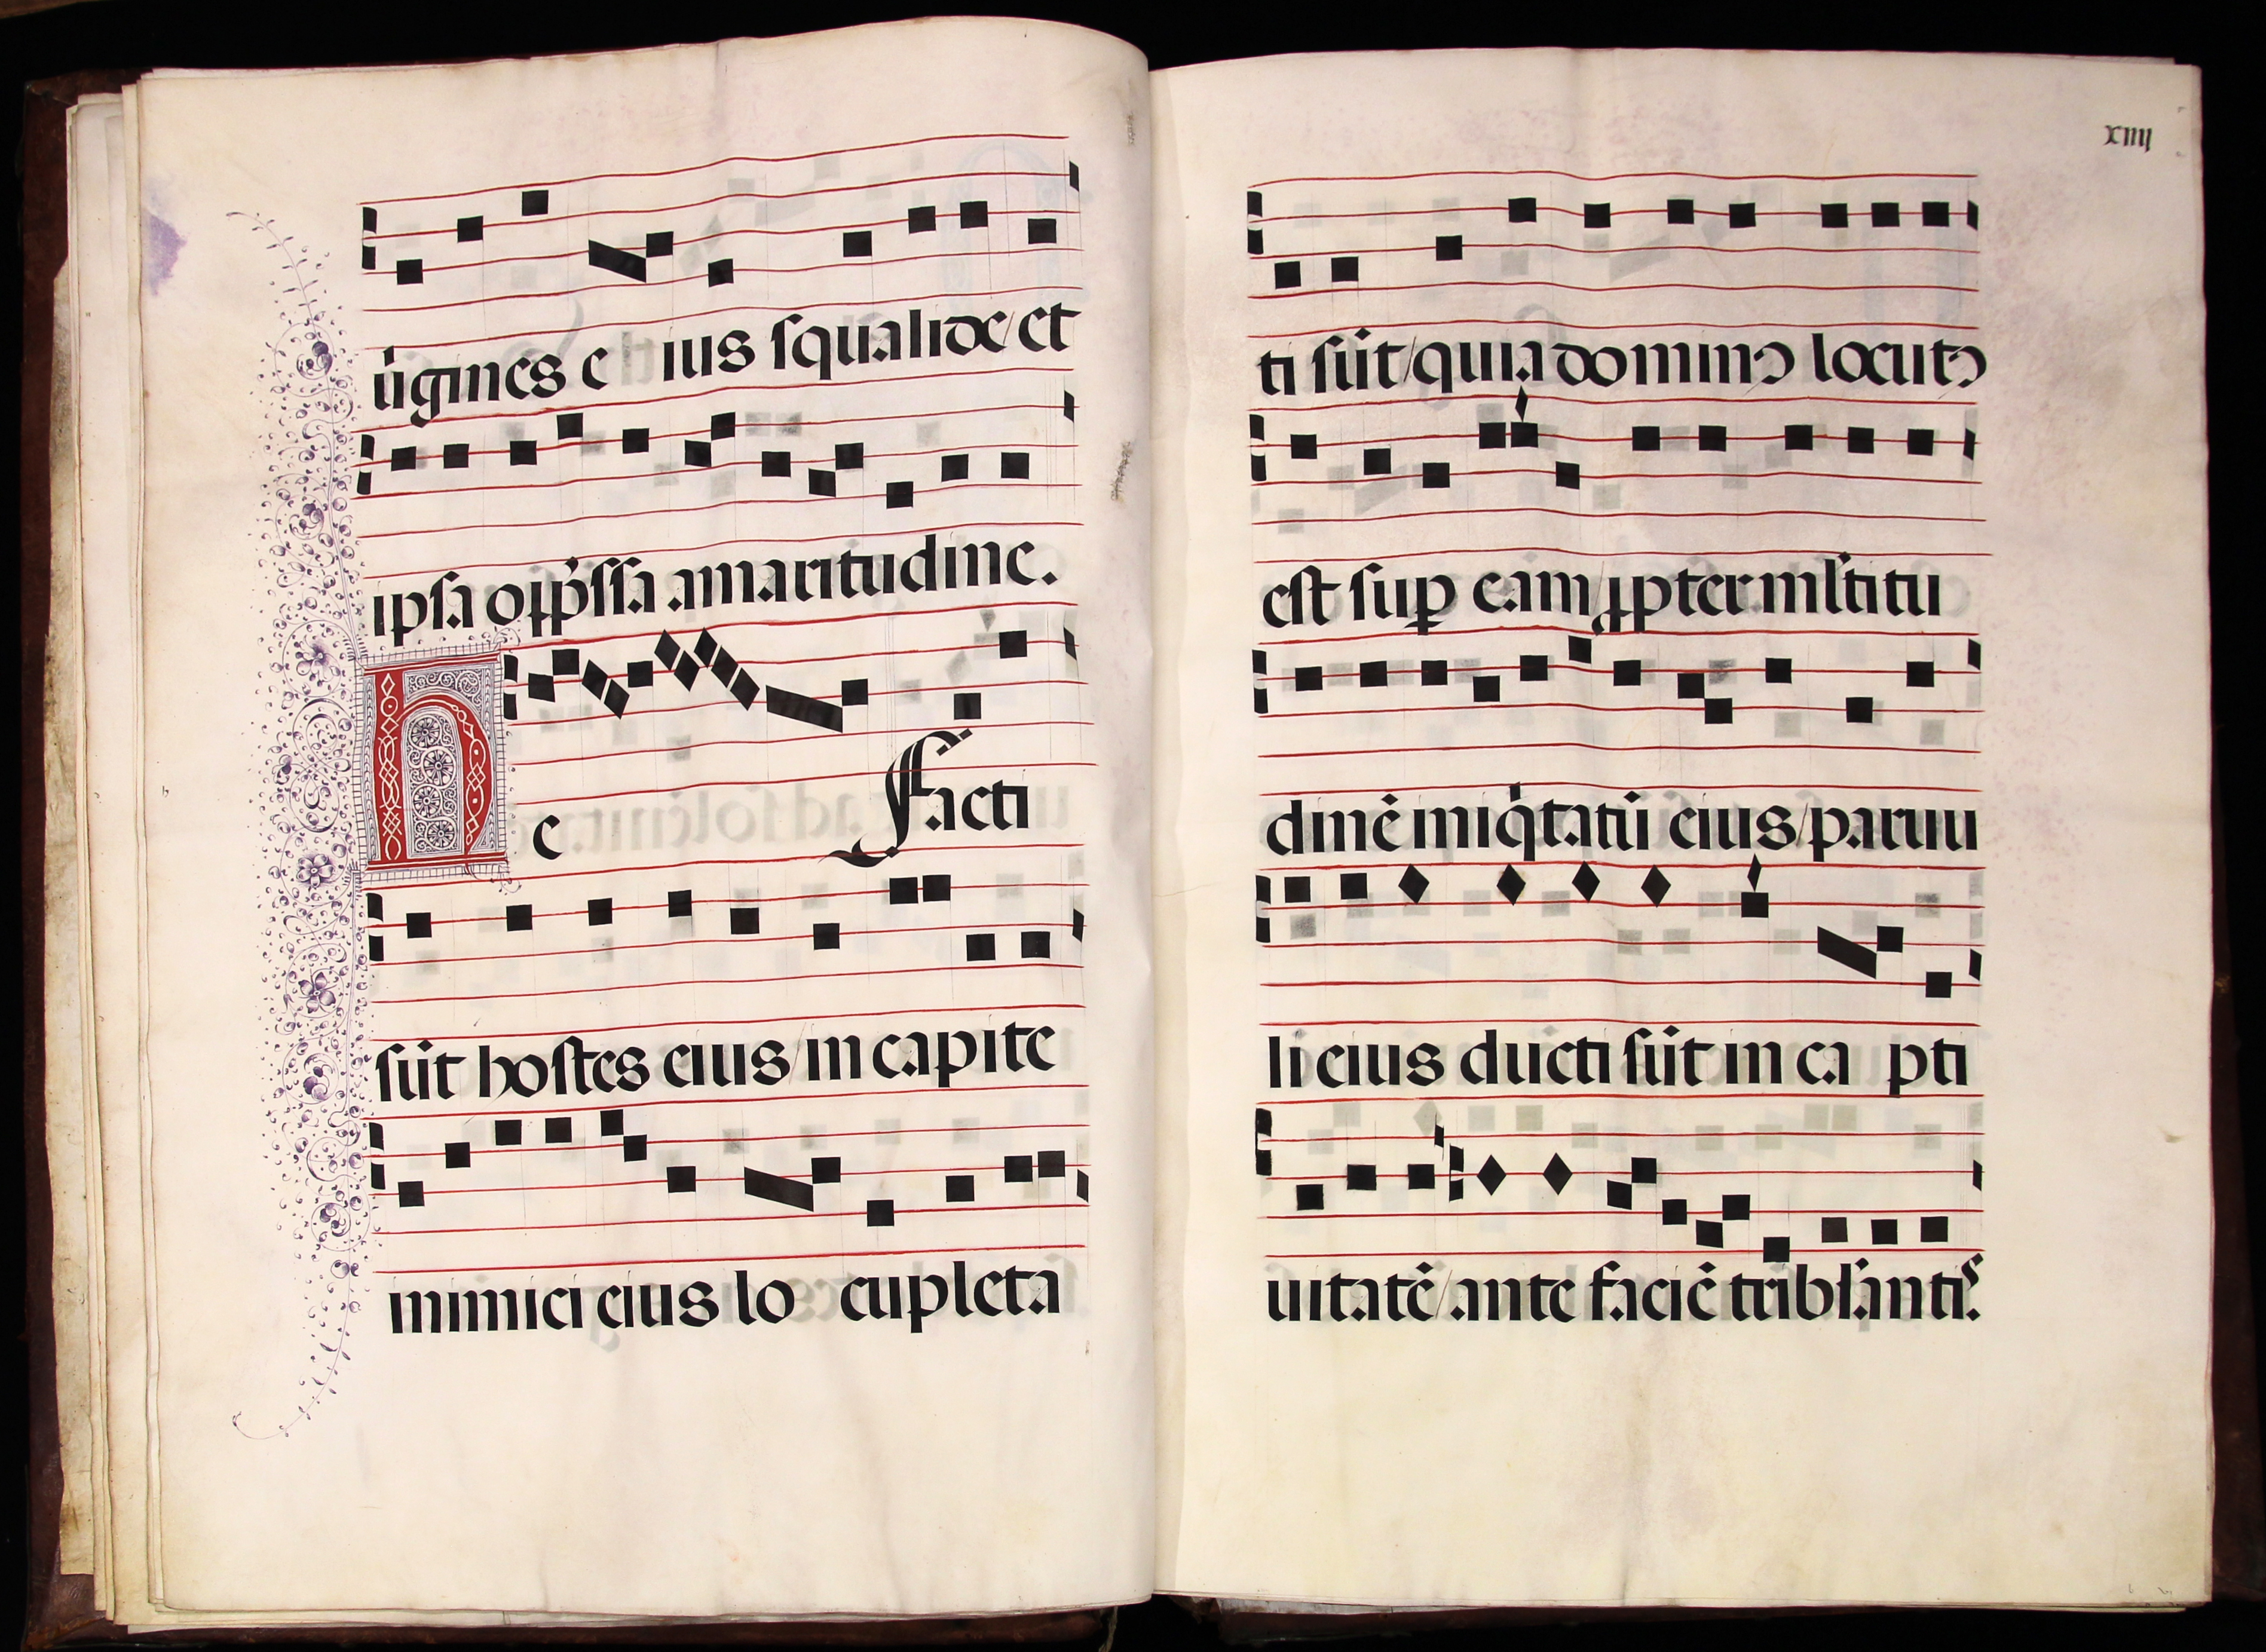 uĩgines e ius squalide/et
ipsa opp̃ssa amaritudine.
h e Facti
sũt hostes eius/in capite
inimici eius lo cupleta
xiiij
ti sũt/quia dominꝰ locutꝰ
est suꝑ eam ꝓpter ml̃titu
dinẽ iniq̃tatũ eius/paruu
li eius ducti sũt in ca pti
uitatẽ/ante faciẽ tribl̃antiˢ.